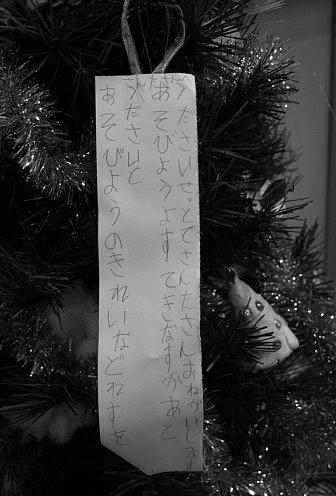 あそびようのきれいなどれすを
くださいと
あそびようよすてきなすかあと
くださいせっとでさんたさんおねがいします